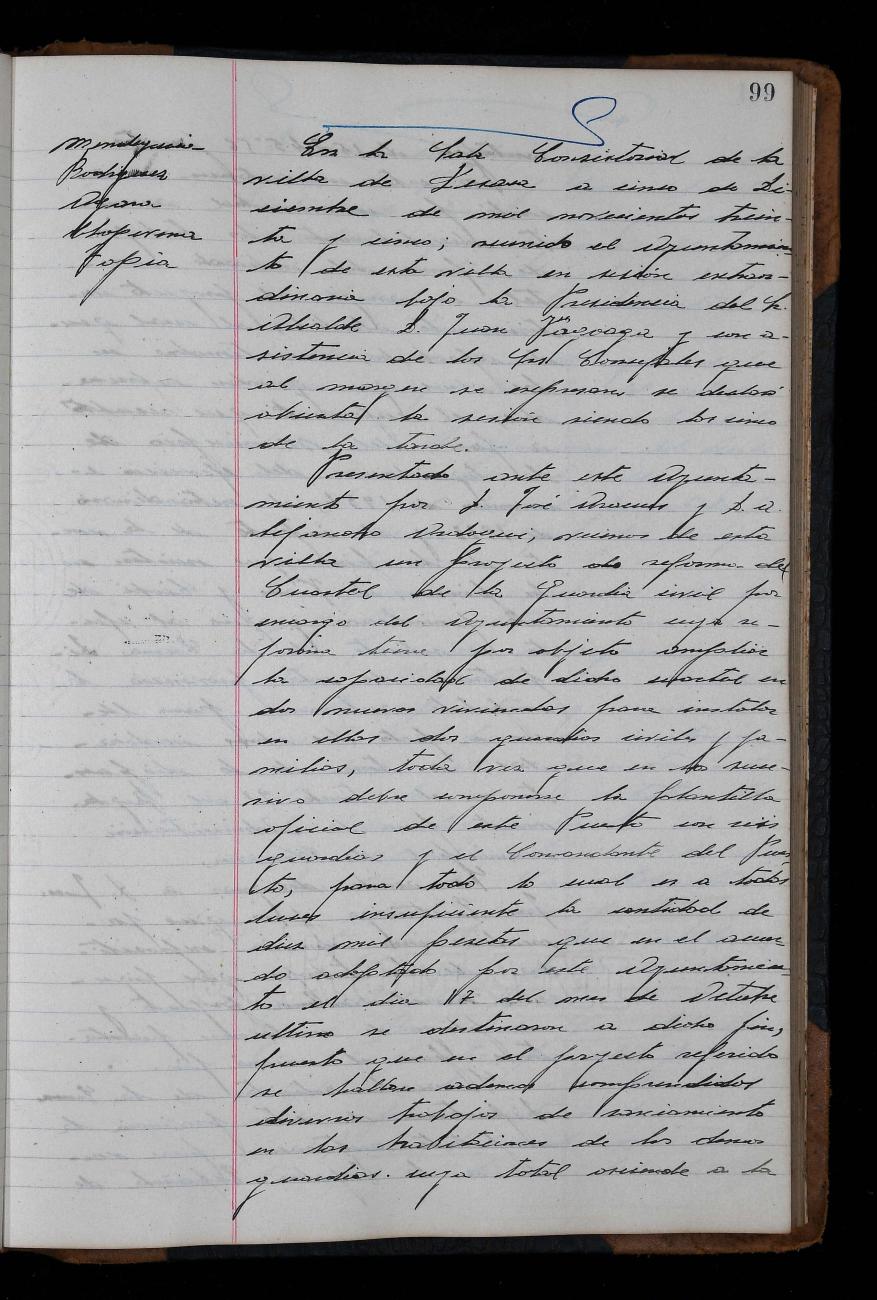 99
Rodriguez
Tapia
En la Sala Consistorial de la
villa de Lesaca a cinco de Di-
ciembre de mil novecientos trein-
ta y cinco; reunido el Ayuntamien-
to de esta villa en sesión extraor-
dinaria bajo la Presidencia del Sr.
Alcalde D. Juan y con a-
sistencia de los Srs Concejales que
al margen se expresan se declaró
abierta la sesión siendo las cinco
de la tarde.
Presentado ante este Ayunta-
miento por D. José y D. A
lejandro vecinos de esta
villa un proyecto de reforma del
Cuartel de la Guardia civil por
encargo del Ayuntamiento cuya re-
forma tiene por objeto ampliar
la capacidad de dicho cuartel en
dos nuevas viviendas para instalar
en ellas dos guardias civiles y fa-
milias, toda vez que en lo suce-
sivo debe componerse la plantilla
oficial de este Puesto con seis
guardias y el Comandante del Pues
to, para todo lo cual es a todas
luces insuficiente la cantidad de
diez mil pesetas que en el acuer-
do adoptado por este Ayuntamien-
to el dia 17 del mes de Octubre
ultimo se destinaron a dicho fin,
puesto que en el proyecto referido
se hallan ademas comprendidos
diversos trabajos de saneamiento
en las habitaciones de los demas
guardias. cuya total asciende a la